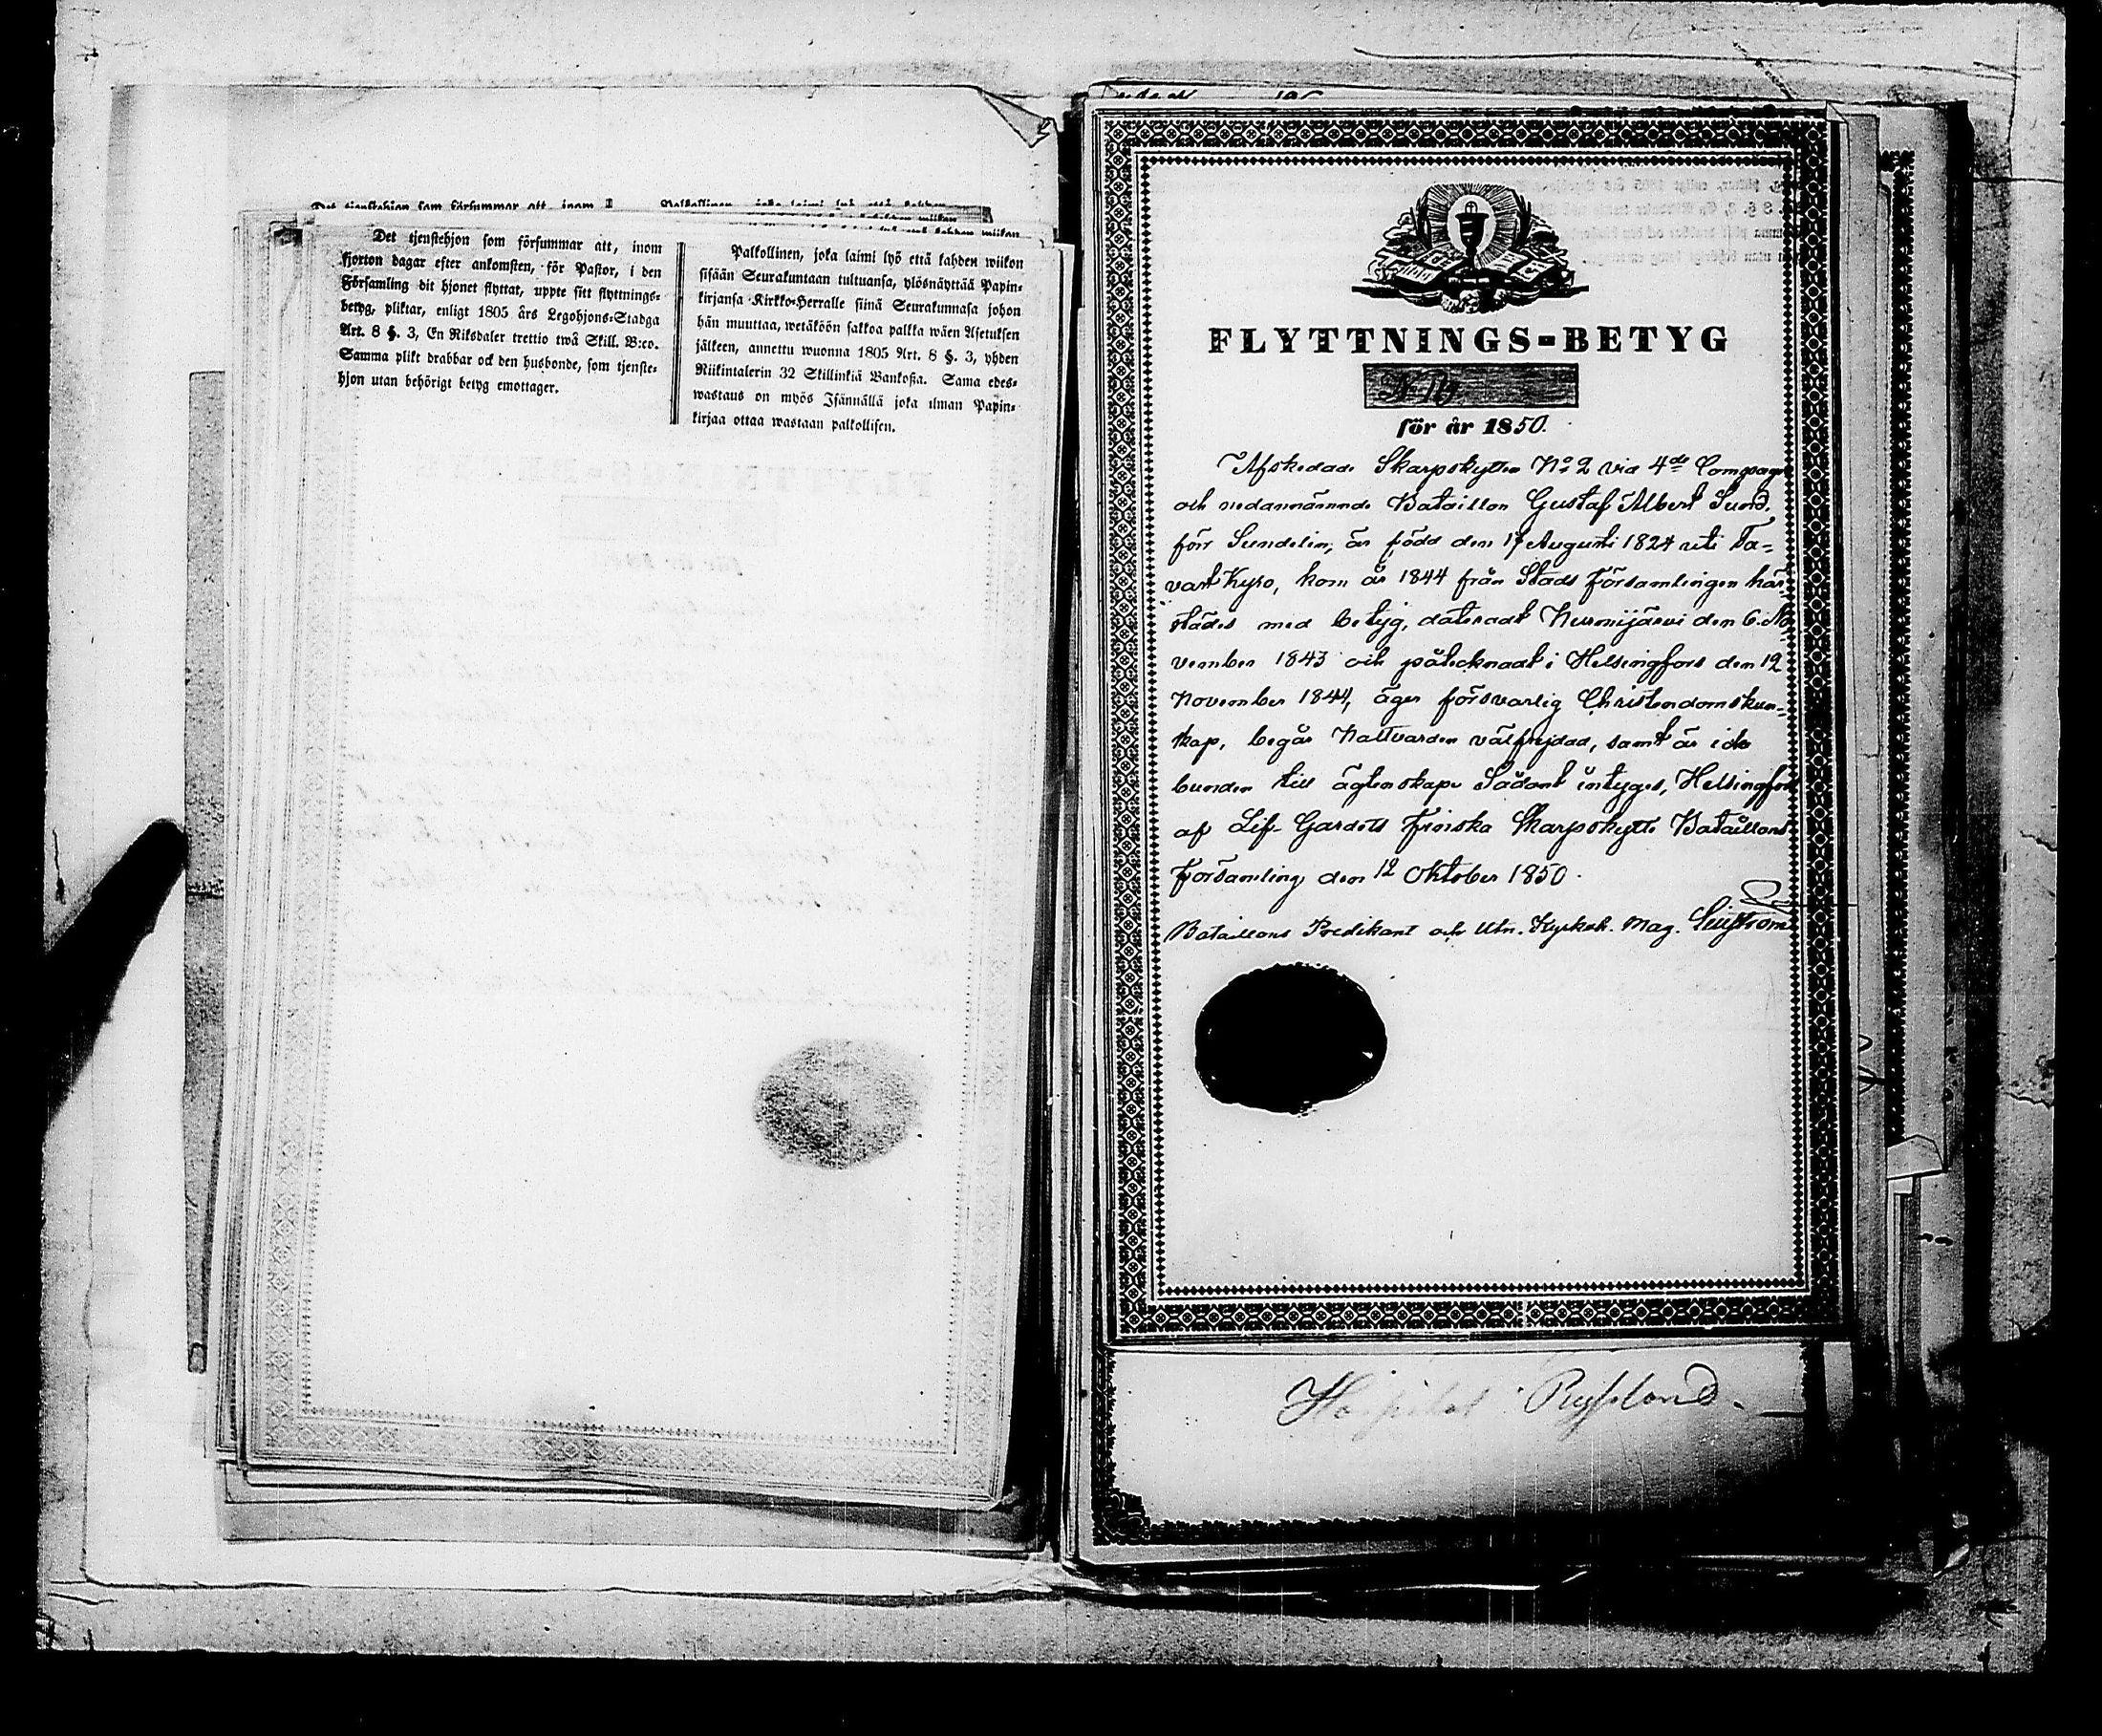 Det tjenstehjon som försummar att, inom
fjorton dagar efter ankomsten, för Pastor, i den
Församling dit hjonet flyttat, uppte sitt flyttnings-
betyg, pliktar, enligt 1805 års Legohjons-Stadga
Art. 8 §. 3, En Riksdaler trettio twå Skill. B:co.
Samma plikt drabbar ock den husbonde, som tjenste-
hjon utan behörigt betyg emottager.
Palkollinen, joka laimi lyö että kahden wiikon
sisään Seurakuntaan tultuansa, ylösnäyttää Papin-
kirjansa Kirkko-Herralle siinä Seurakunnasa johon
hän muuttaa, wetäköön sakkoa palkka wäen Asetuksen
jälkeen, annettu wuonna 1805 Art. 8 §. 3, yhden
Riikintalerin 32 Skillinkiä Bankosia. Sama edes-
wastaus on myös Isännällä joka ilman Papin-
kirjaa ottaa wastaan palkollisen.
FLYTTNINGS-BETYG
för år 1850.
Afskedade Skarpskytten No 2 vid 4de Compagni
och nedannämnde Bataillon Gustaf Albert Sund,
förr Sundelin, är född den 17 Augusti 1824 uti Ta-
vastKyro, kom år 1844 från Stads Församlingen här-
städes med betyg, dateradt Nurmijärvi den 6. No-
vember 1843 och påtecknadt i Helsingfors den 12
November 1844, äger försvarlig Christendomskun-
skap, begår Nattvarden välfrejdad, samt är icke
bunden till ägtenskape Sådant intyges, Helsingfors
af Lif-Gardets Finska Skarpskytte Bataillons
Församling den 12 Oktober 1850.
Bataillons Predikant och Utn. Kyrkoh. Mag.
Hospitalet Ryssland.